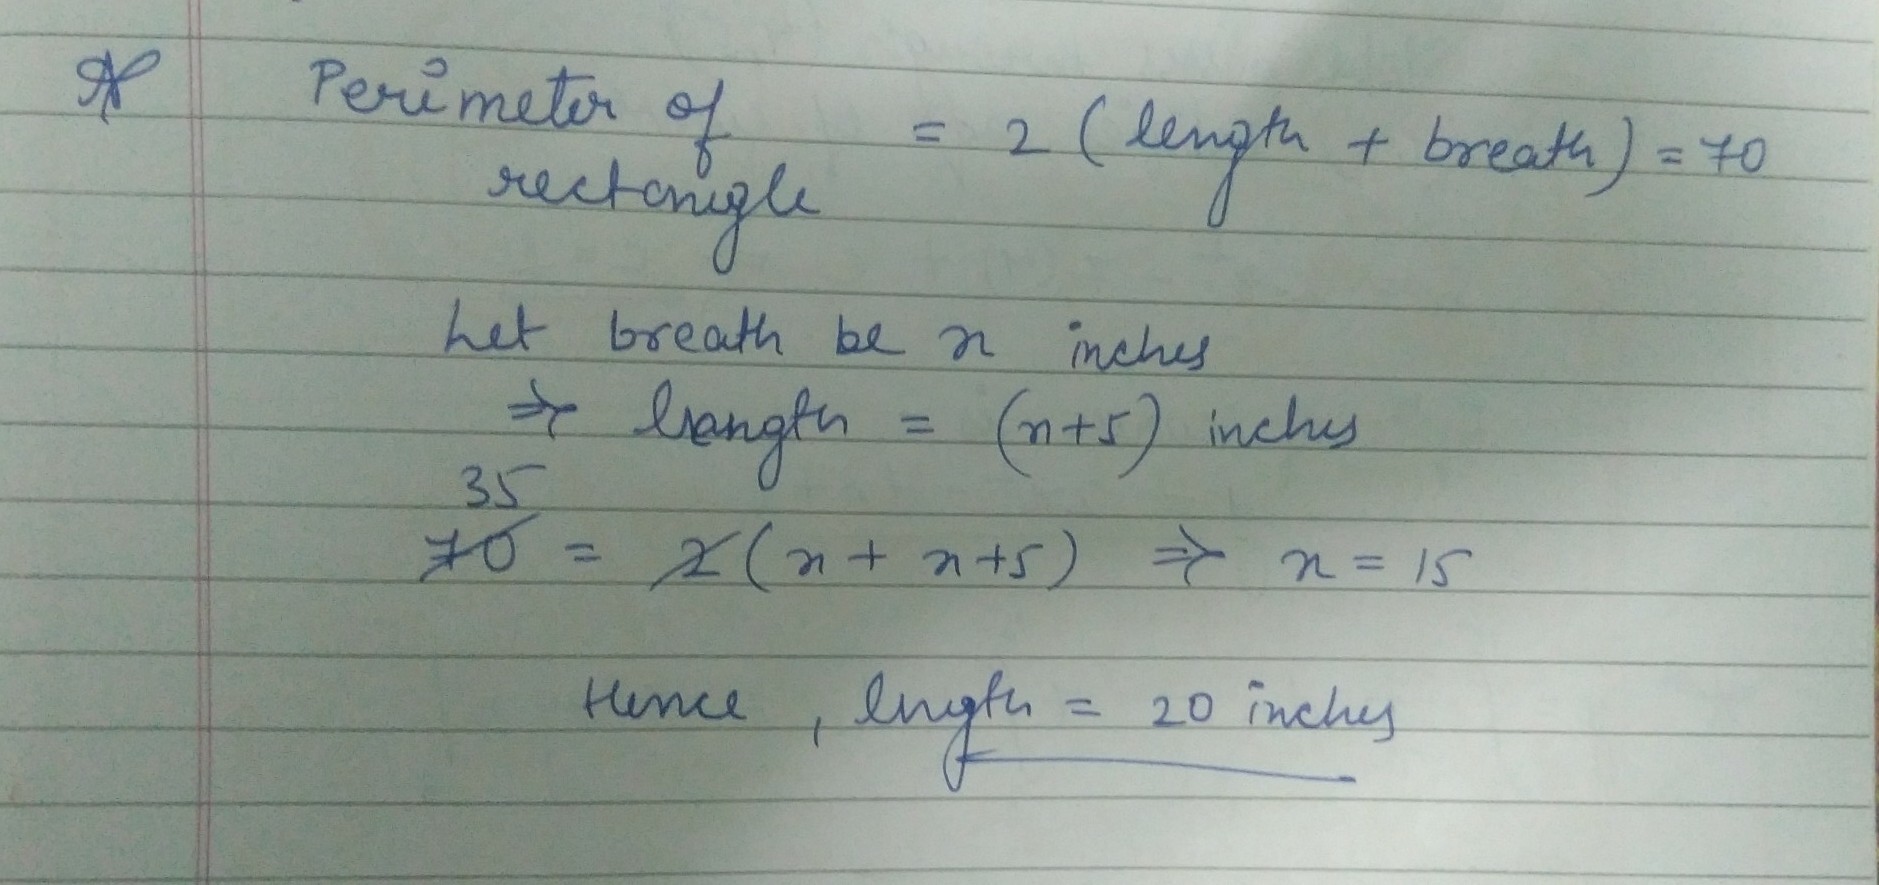 Perimeter of = 2 (length + breath) = 70
rectangle
Let breath be x inches
⇒ length = (x+5) inches
35
70 = 2 (x + x+5) ⇒ x = 15
Hence, length = 20 inches